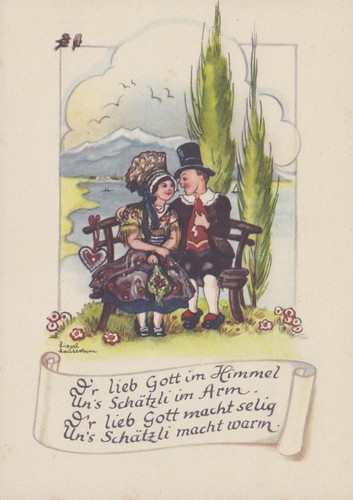 Liesel Lauterborn
D'r lieb Gott im Himmel
Un's Schätzli im Arm.
D'r lieb Gott macht selig
Un's Schätzli macht warm.